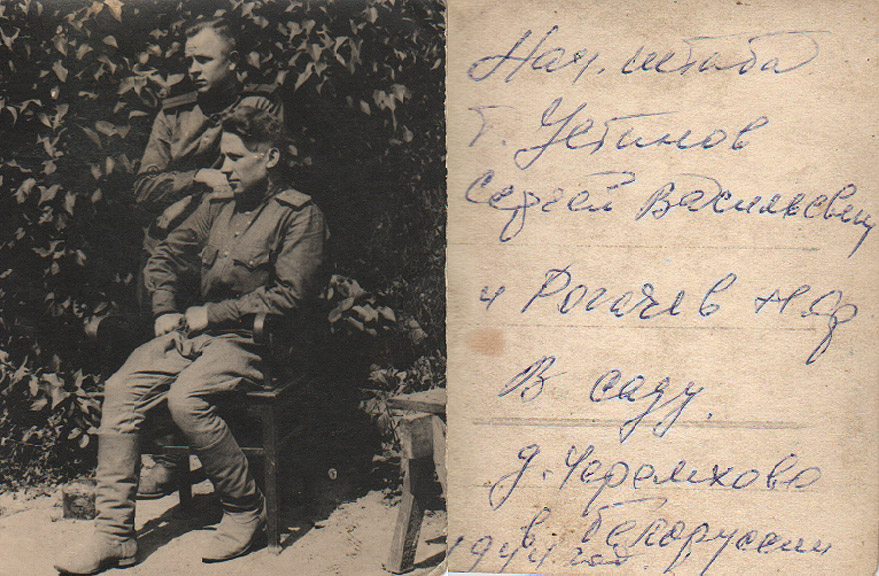 Нач. штаба
т. Устинов
Сергей Васильевич
и Рогачев
В саду.
д. Черемхово
в Белоруссии
1944 год.